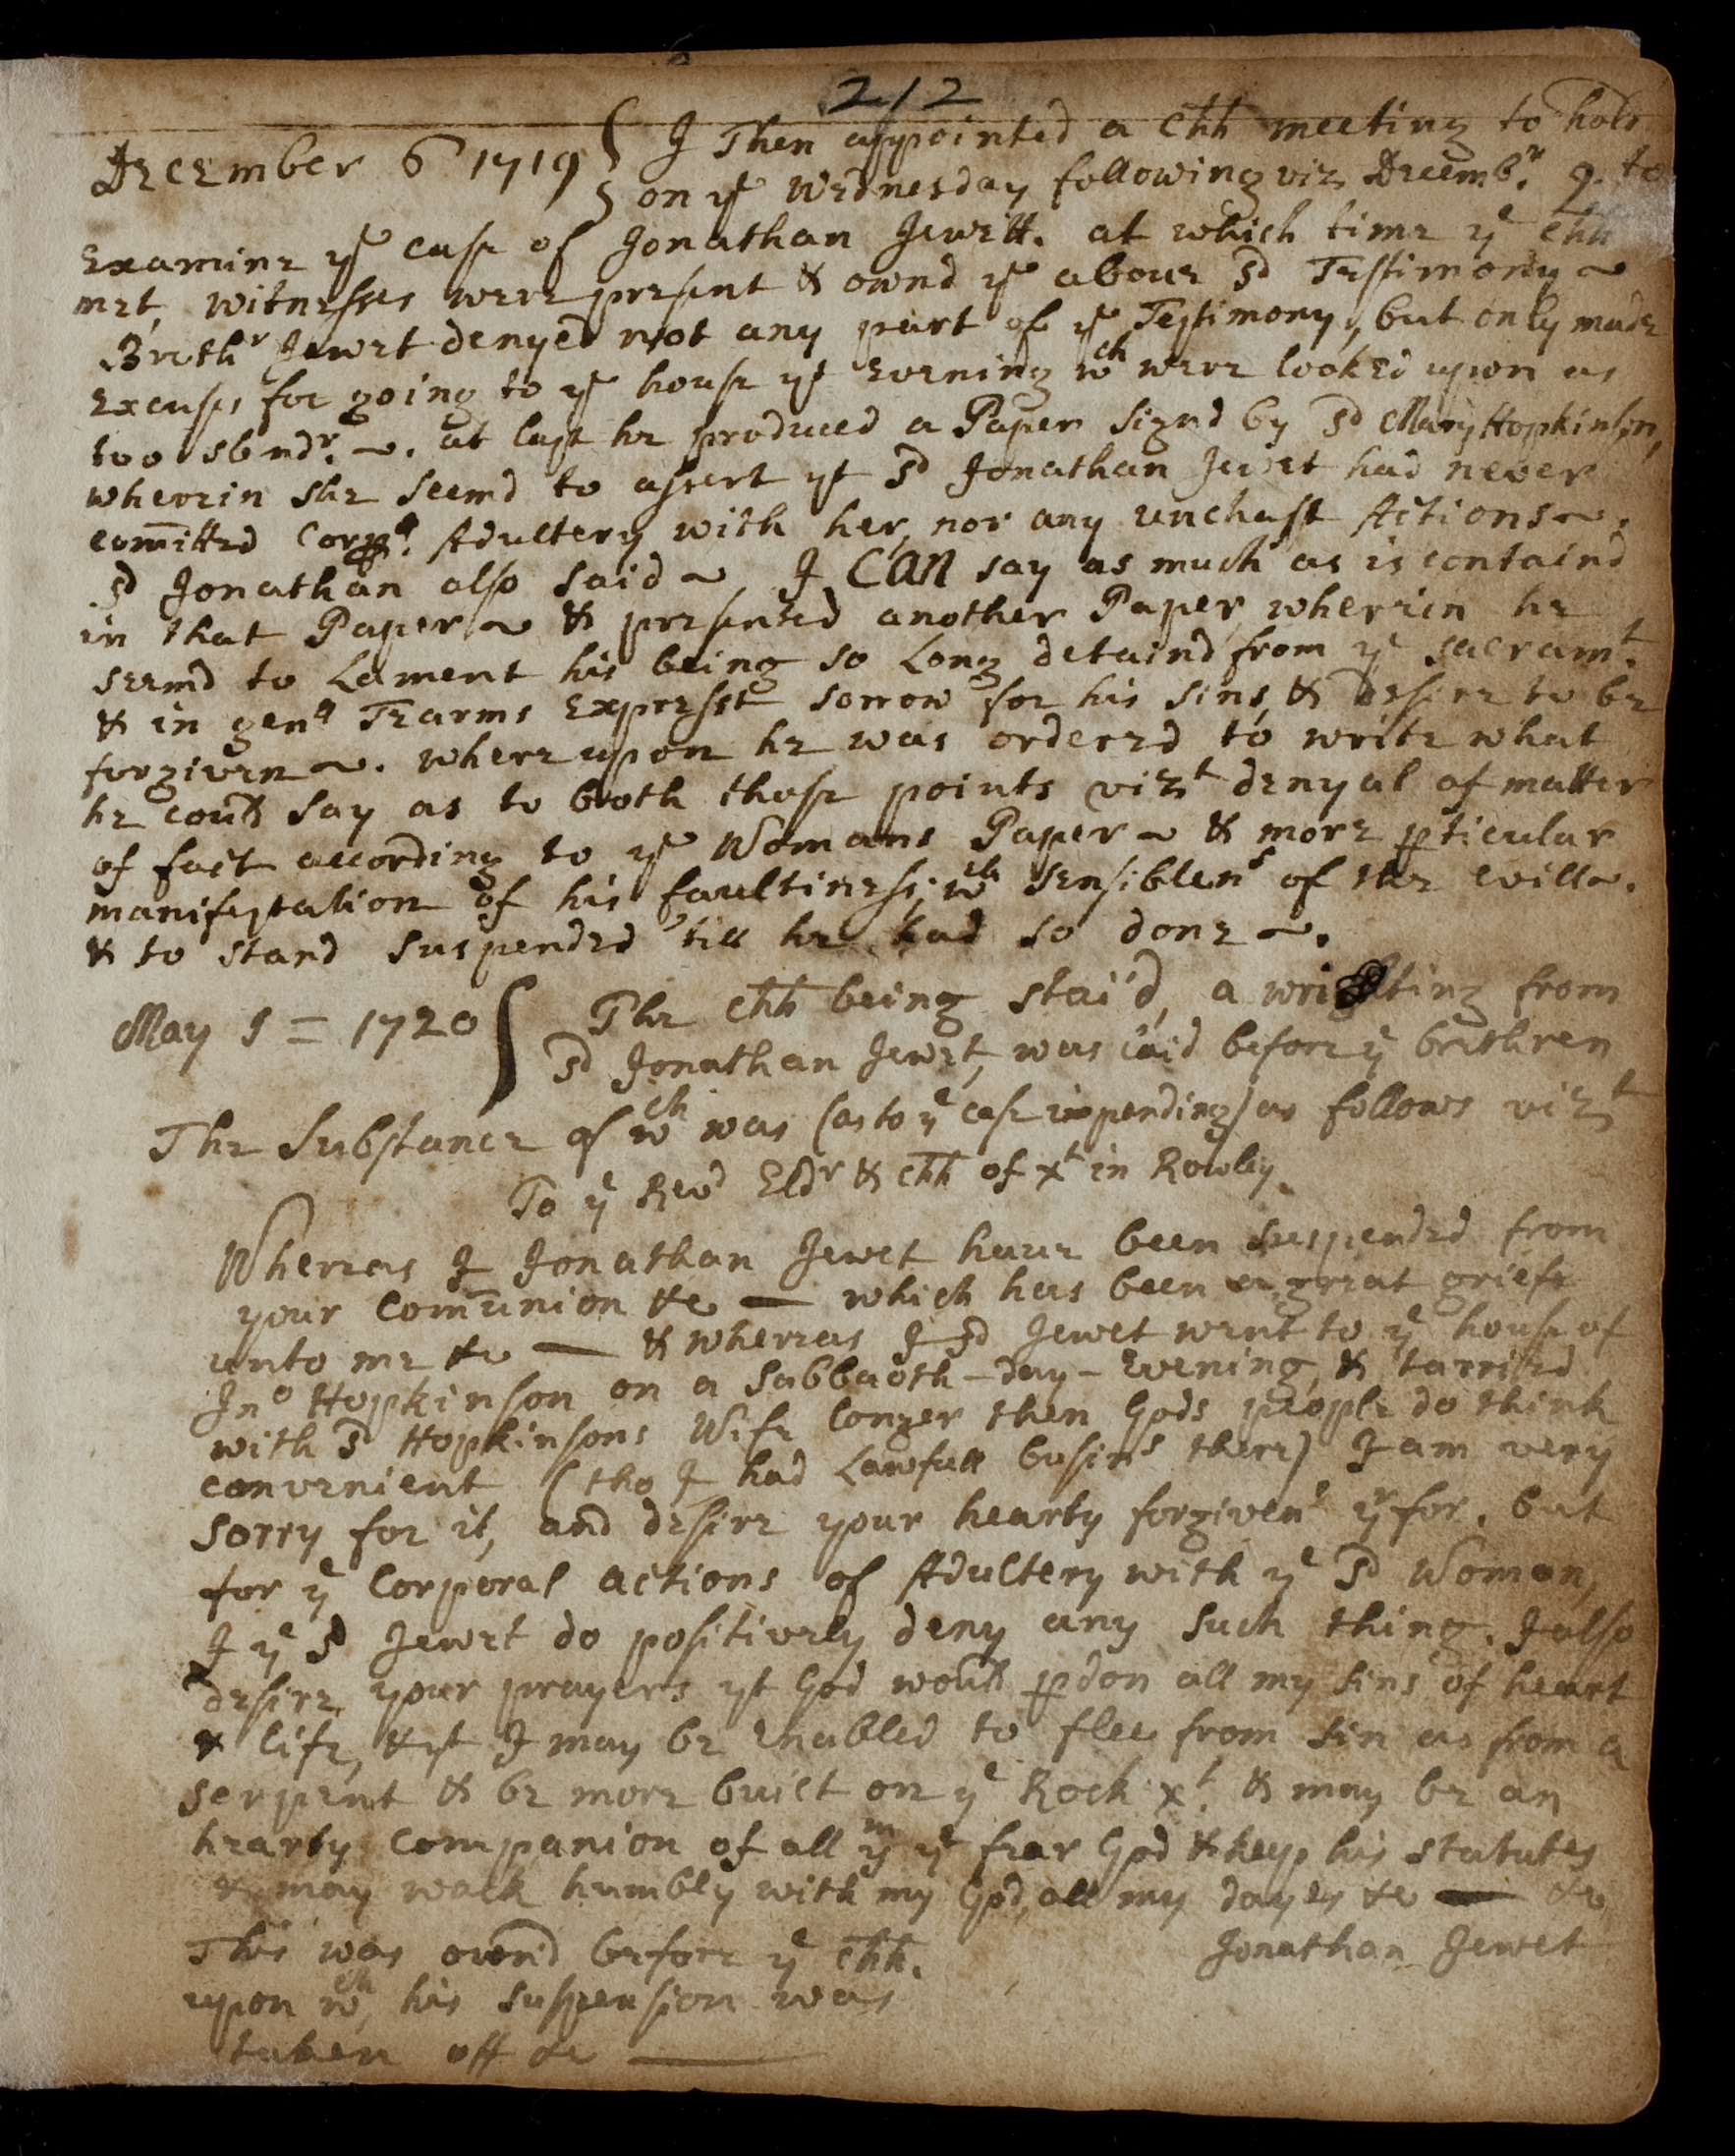 212
December 6 1719 { I Then appointed a Chh meeting to hold
on ye Wednesday following viz Decembr. 9. to
Examine ye case of Jonathan Jewett. at which time ye Chh
met, witnesses were present & ownd ye above sd Testimony ~
Brothr Jewet denyed not any part of ye Testimony, but only made
Excuses for going to ye house yt Evening wch were looked upon as
too slendr. ~. at last he produced a Paper signd by sd Mary Hopkinson,
wherein she seemd to assert yt sd Jonathan Jewet had never
com̄itted Corpll. Adultery with her, nor any unchast Actions ~.
sd Jonathan also said ~, I CAN say as much as is containd
in that Paper ~ & presented another Paper, wherein he
seemd to Lament his being so Long detaind from ye sacramt.
& in genll Tearms Exprest sorrow for his sins, & desire to be
forgiven ~. whereupon he was ordered to write what
he could say as to both those points vizt denyal of matter
of fact according to ye Womans Paper ~ & more pticular
manifestation of his faultiness; wth sensiblens of the evill ~.
& to stand suspended 'till he had so done ~.
May 1 = 1720 { The Chh being stai'd, a writing from
sd Jonathan Jewet, was laid before ye brethren
The Substance of wch was (as to ye case impending) as follows vizt
To ye Revd Eldr & Chh of xt in Rowley.
Whereas I Jonathan Jewet have been suspended from
your Com̄union &c — which has been a great griefe
unto me &c — & whereas I sd Jewet went to ye house of
Jno Hopkinson on a Sabbaoth-day-Evening, & tarried
with sd Hopkinsons Wife longer then Gods people do think
convenient (tho I had Lawfull busins there) I am very
sorry for it, and desire your hearty forgivens yrfor. but
for ye Corporal actions of Adultery with ye sd Woman,
I ye sd Jewet do positively deny any such thing. I also
desire your prayers yt God would pdon all my sins of heart
& life, & yt I may be Enabled to flee from sin as from a
serpent & be more built on ye Rock xt. & may be an
hearty Companion of all ym yt fear God & keep his statutes
& may walk humbly with my God, all my dayes &c — &c
Jonathan Jewet
This was ownd before ye Chh.
upon wch, his suspension was
taken off &c —